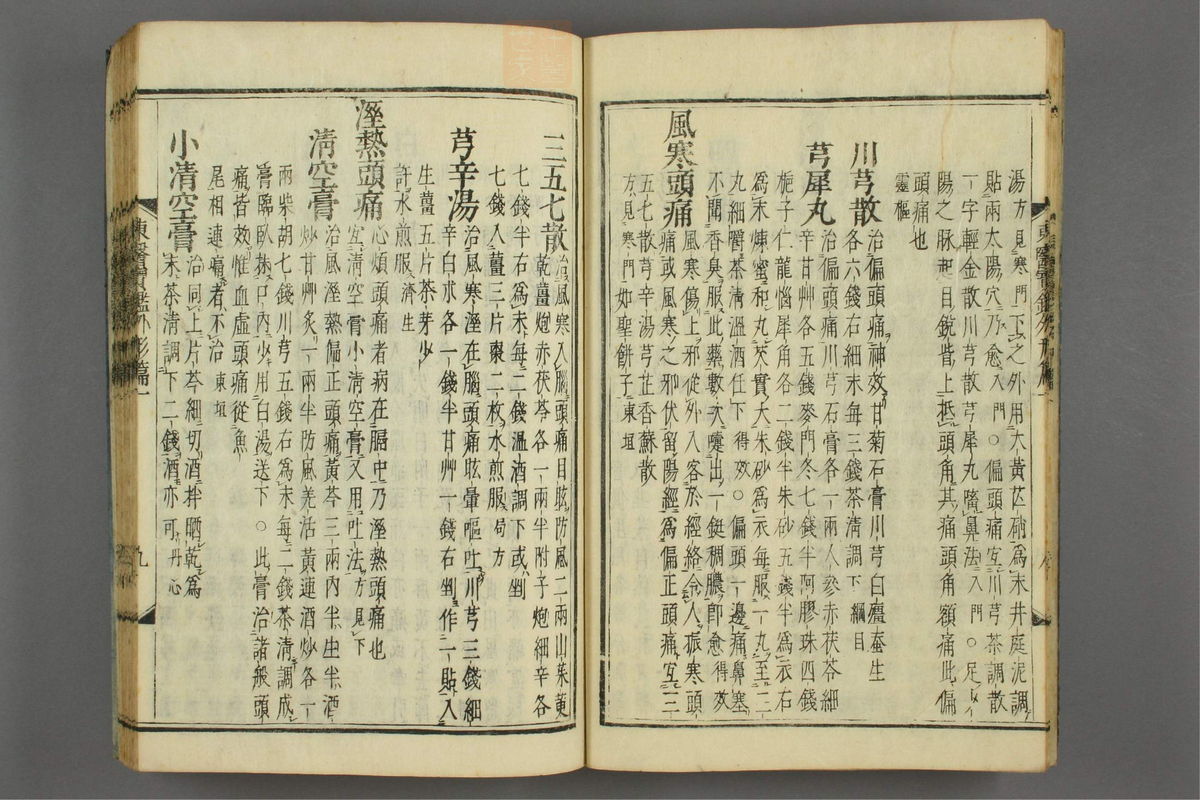 湯方見寒門下之外用大黃芒硝爲末井庭泥調
貼兩太陽穴乃愈入門○偏頭痛宜川芎茶調散
一字輕金散川芎散芎犀丸䲔鼻法入門○足少
陽之脉起目銳眥上抵頭角其痛頭角額痛此偏
頭痛也
靈樞
川芎散治偏頭痛神效甘菊石膏川芎白殭蚕生
各六錢右細末每三錢茶清調下綱目
芎犀丸治偏頭痛川芎石膏各一兩人參赤茯苓細
辛甘艸各五錢麥門冬七錢半阿膠珠四錢
梔子仁龍惱犀角各二錢半朱砂五錢半爲衣右
爲末煉蜜和丸芡實大朱砂爲衣每服一丸至二
丸細嚼茶清溫酒任下得效○偏頭一邊痛鼻塞
不聞香臭服此藥數次嚏出一鋌稠膿卽愈得效
風寒頭痛風寒傷上邪從外入客於經絡令人振寒頭
痛或風寒之邪伏留陽經爲偏正頭痛宜三
五七散芎辛湯芎芷香蘇散
方見寒門如聖餠子東垣
三五七散治風寒入腦頭痛目眩防風二兩山茱萸
乾薑炮赤茯苓各一兩半附子炮細辛各
七錢半右爲末每二錢溫酒調下或剉
七錢入薑三片棗二枚水煎服局方
芎辛湯治風寒溼在腦頭痛眩暈嘔吐川芎三錢細
辛白朮各一錢半甘艸一錢右剉作一貼入
生薑五片茶芽少
許水煎服濟生
溼熱頭痛心煩頭痛者病在膈中乃溼熱頭痛也
宜淸空膏小淸空膏又用吐法方見下
淸空膏治風溼熱偏正頭痛黃芩三兩內半生半酒
炒甘艸炙一兩半防風羌活黃連酒炒各一
兩柴胡七錢川芎五錢右爲末每二錢茶清調成
膏臨臥抹口內少用白湯送下○此膏治諸般頭
痛皆效惟血虛頭痛從魚
尾相連痛者不治東垣
小清空膏治同上片芩細切酒拌晒乾爲
末茶清調下二錢酒亦可丹心
東醫寶鑑外形篇一
九